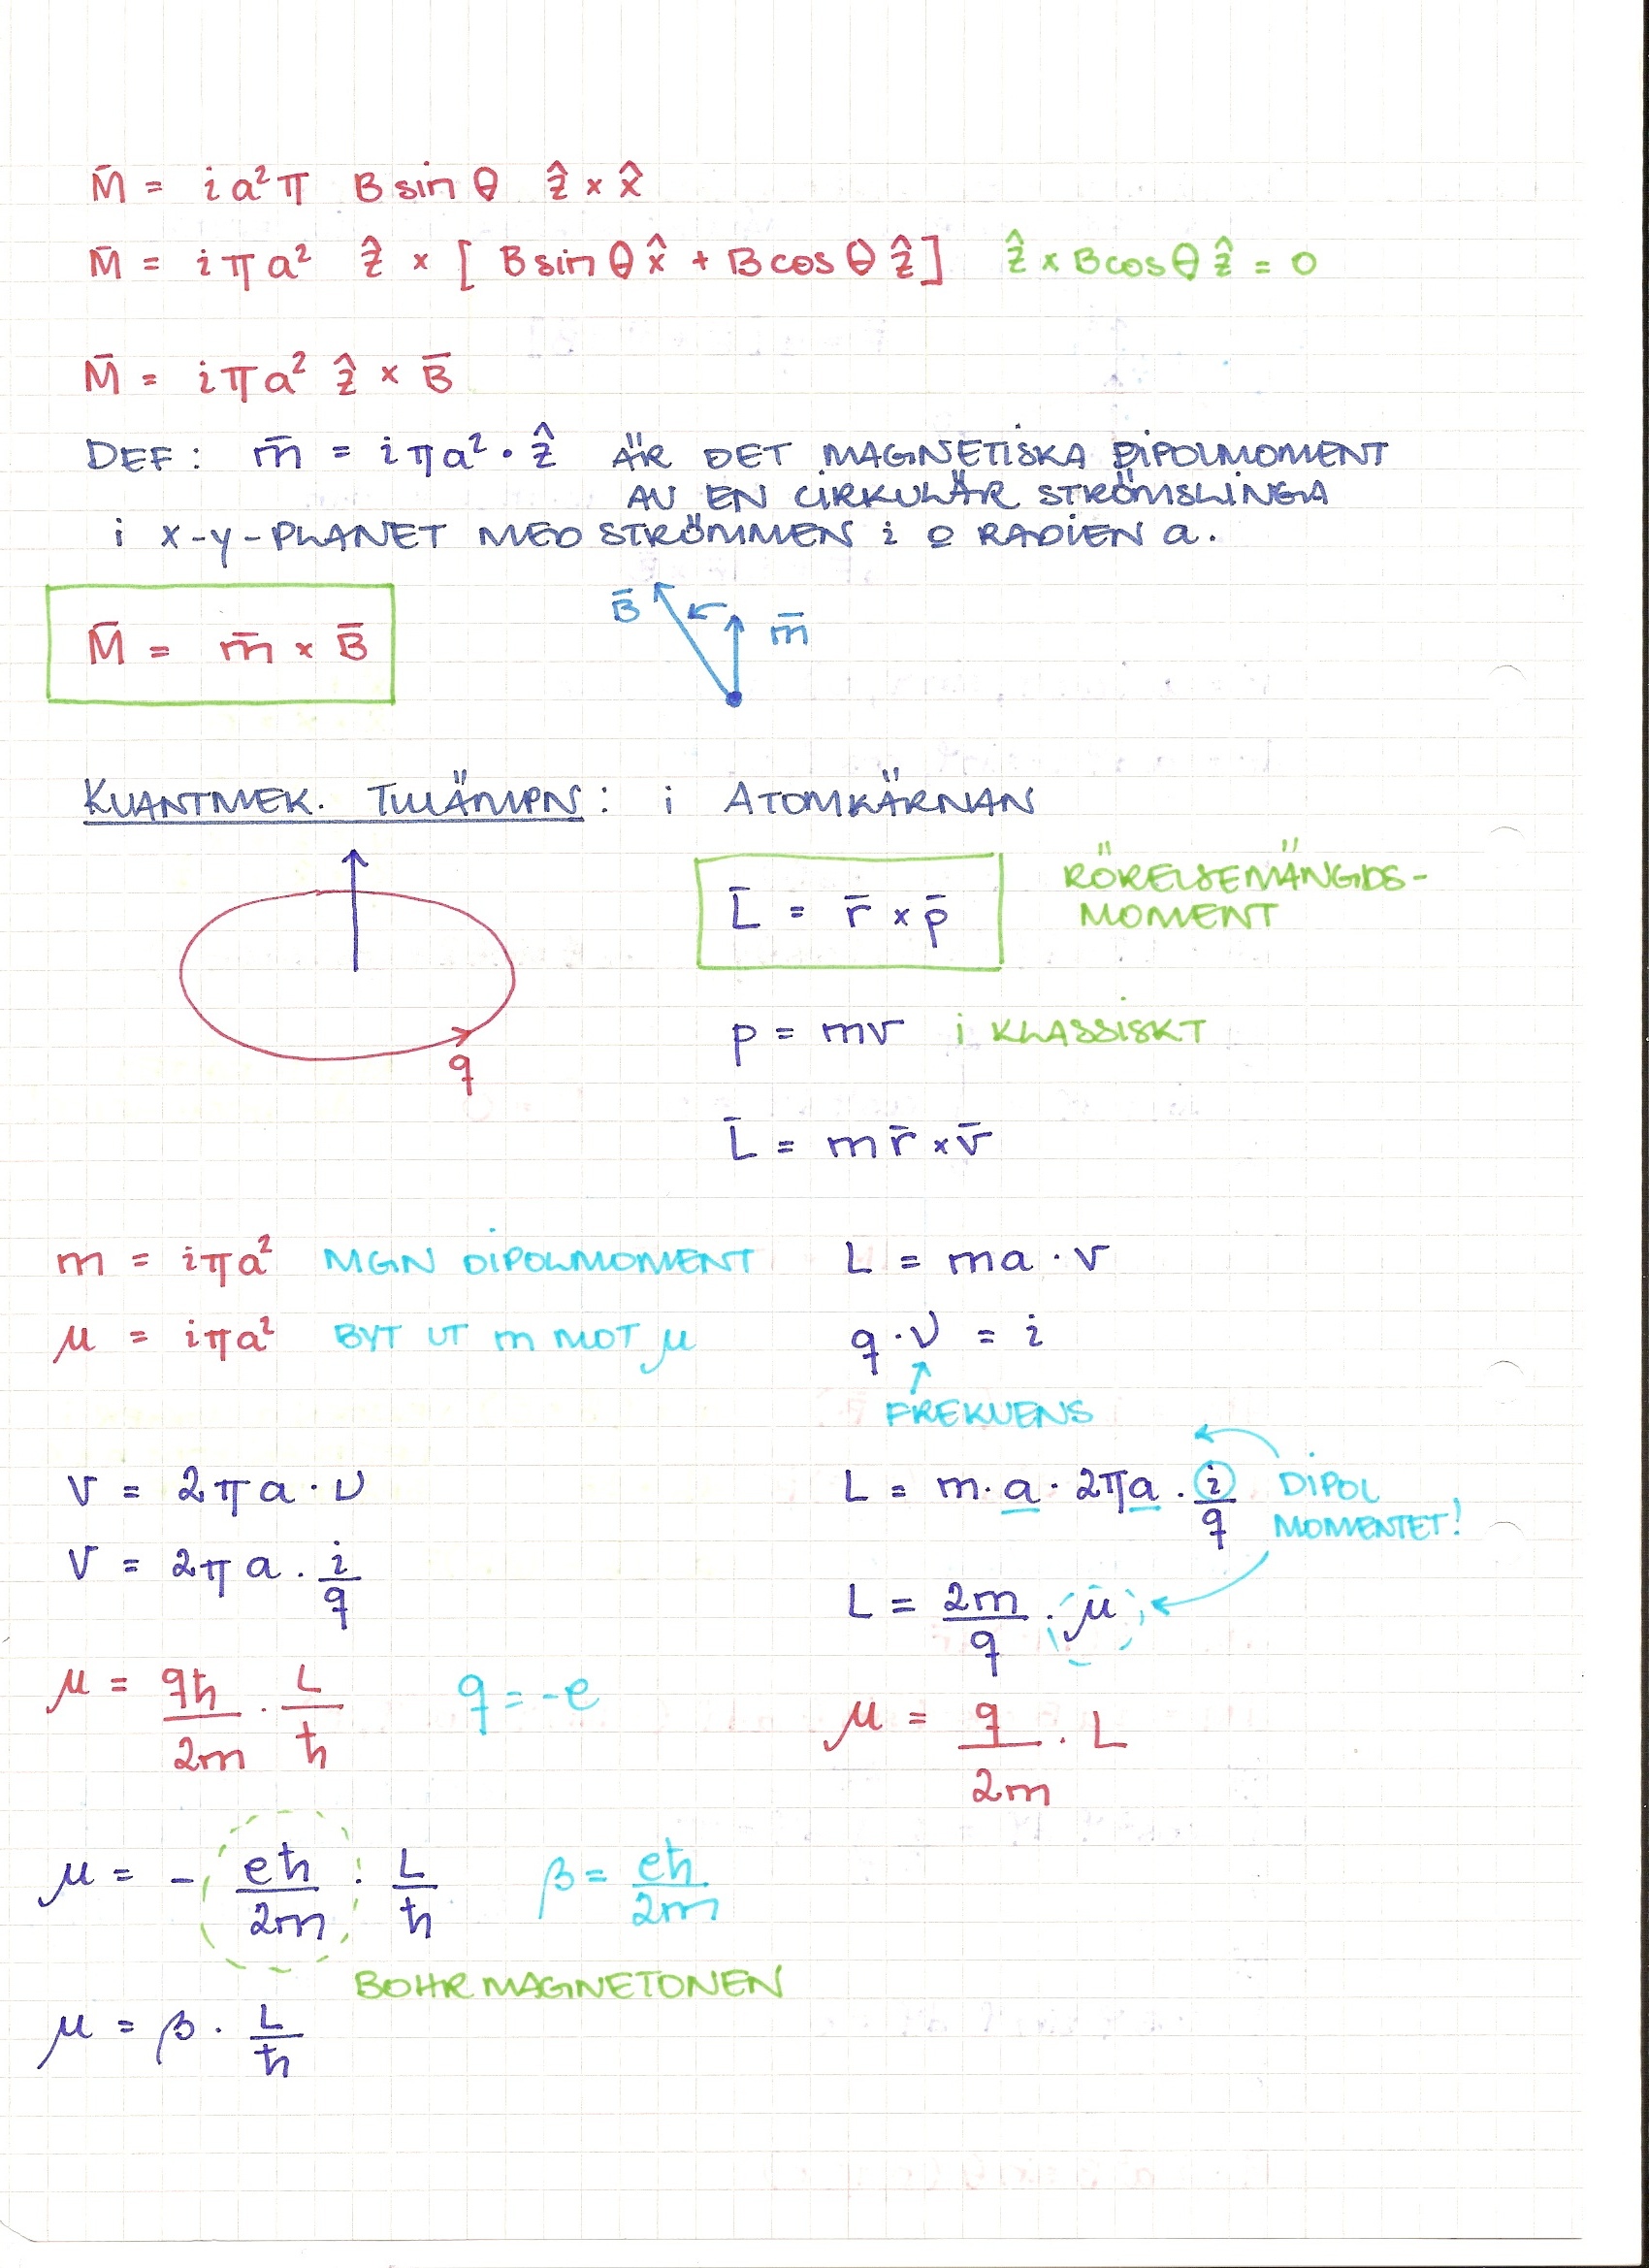 M̄ = i a²π B sin θ ẑ × x̂
M̄ = i π a² ẑ × [ B sin θ x̂ + B cos θ ẑ ] ẑ × B cos θ ẑ = 0
M̄ = i π a² ẑ × B̄
DEF: m̄ = i π a² · ẑ ÄR DET MAGNETISKA DIPOLMOMENT
AV EN CIRKULÄR STRÖMSLINGA
i x-y-PLANET MED STRÖMMEN i o RADIEN a.
M̄ = m̄ × B̄
B̄ m̄
KVANTMEK. TILLÄMPN: i ATOMKÄRNAN
L̄ = r̄ × p̄
RÖRELSEMÄNGDS-
MOMENT
q
p = mv i KLASSISKT
L̄ = m r̄ × v̄
m = i π a² MGN DIPOLMOMENT
L = ma · v
μ = i π a² BYT UT m MOT μ
q · ν = i
FREKVENS
v = 2πa · ν
L = m · a · 2πa · i/q
DIPOL
MOMENTET!
v = 2πa · i/q
L = 2m/q · μ
μ = qħ/2m · L/ħ q = -e
μ = q/2m · L
μ = - eħ/2m · L/ħ β = eħ/2m
BOHRMAGNETONEN
μ = β · L/ħ